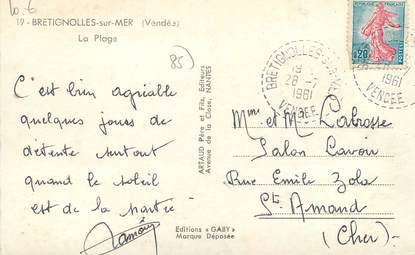 10.€
19 - BRETIGNOLLES-sur-MER (Vendée)
La Plage
85
C'est bien agréable
quelques jours de
détente surtout
quand le soleil
est de la partie
ARTAUD Père et Fils, Editeurs
Avenue de la Close, NANTES
Editions « GABY »
Marque Déposée
REPUBLIQUE FRANÇAISE
0,20
BRETIGNOLLES-SUR-MER
28-7
1961
VENDEE
1961
VENDEE
Mme et Mr Labrosse
Salon Lavoir
Rue Emile Zola
St Amand
(Cher)